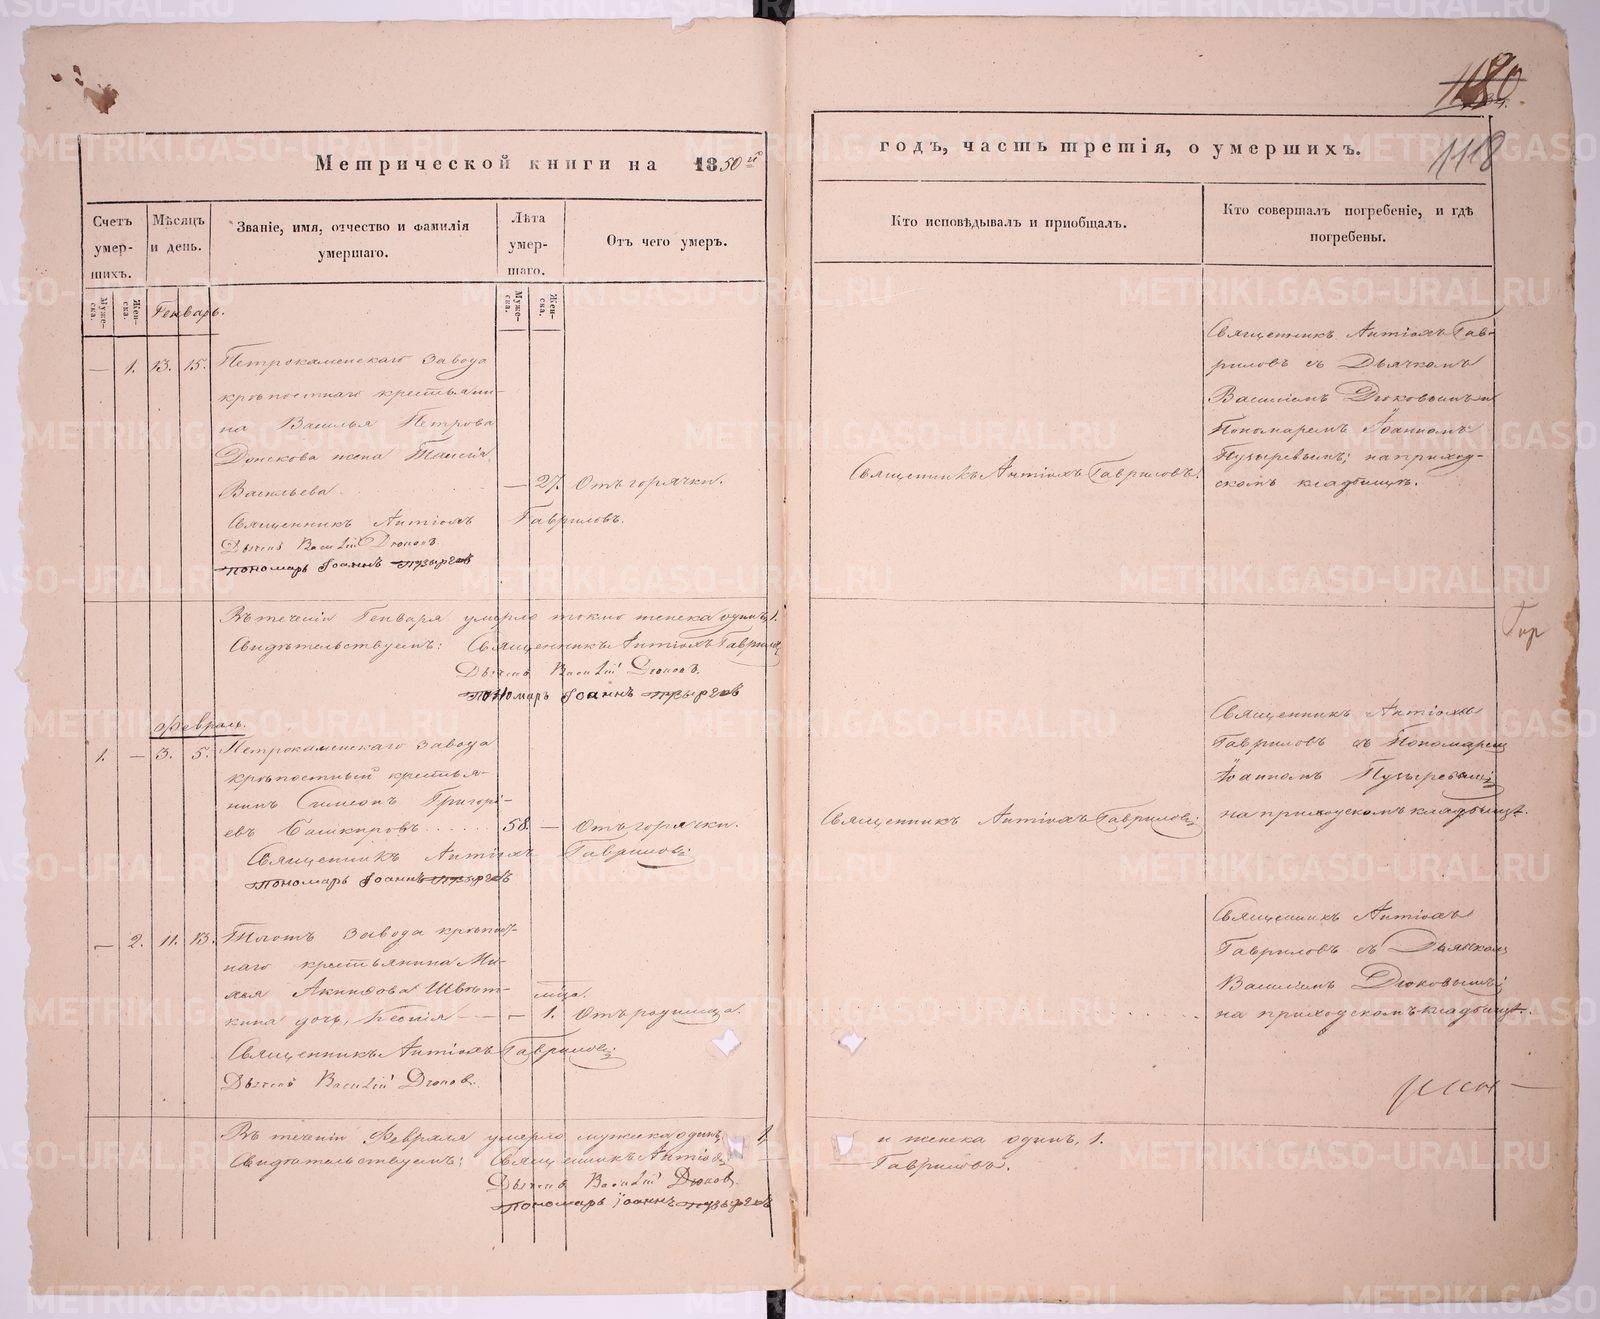 1180
1118
Метрической книги на 1850й
годъ, часть третія, о умершихъ.
Счетъ умер-шихъ.
Мѣсяцъ и день.
Званіе, имя, отчество и фамилія умершаго.
Лѣта умер-шаго.
Отъ чего умеръ.
Кто исповѣдывалъ и приобщалъ.
Кто совершалъ погребеніе, и гдѣ погребены.
Муже-ска.
Жен-ска.
Муже-ска.
Жен-ска.
Генварь.
— 1. 13. 15. Петрокаменскаго завода
крѣпостнаго крестьяни-
на Василья Петрова
Донскова жена Таисія
Васильева — 27. Отъ горячки.
Священникъ Антіохъ Гавриловъ.
Дьячекъ Василій Дюковъ.
Пономарь Іоаннъ Пузыревъ
Священникъ Антіохъ Гавриловъ.
Священникъ Антіохъ Гав-
риловъ съ Дьячкомъ
Василіемъ Дюковымъ и
Пономаремъ Іоанномъ
Пузыревымъ; на приход-
скомъ кладбищѣ.
Въ теченіи Генваря умерло токмо женска одинъ, 1.
Свидѣтельствуемъ: Священникъ Антіохъ Гавриловъ
Дьячекъ Василій Дюковъ.
Пономарь Іоаннъ Пузыревъ
Февраль.
1. — 3. 5. Петрокаменскаго завода
крѣпостный крестья-
нинъ Симеонъ Григорі-
евъ Башкировъ...... 58. — Отъ горячки.
Священникъ Антіохъ Гавриловъ.
Пономарь Іоаннъ Пузыревъ
Священникъ Антіохъ Гавриловъ.
Священникъ Антіохъ
Гавриловъ съ Пономаремъ
Іоанномъ Пузыревымъ;
на приходскомъ кладбищѣ.
— 2. 11. 13. Тогожъ завода крѣпост-
наго крестьянина
Акинфова
кина дочь, — — 1. Отъ родимца.
Священникъ Антіохъ Гавриловъ.
Дьячекъ Василій Дюковъ.
Священникъ Антіохъ
Гавриловъ съ Дьячкомъ
Василіемъ Дюковымъ;
на приходскомъ кладбищѣ.
Въ теченіи Февраля умерло мужска одинъ, 1, и женска одинъ, 1.
Свидѣтельствуемъ: Священникъ Антіохъ Гавриловъ.
Дьячекъ Василій Дюковъ.
Пономарь Іоаннъ Пузыревъ
METRIKI.GASO-URAL.RU